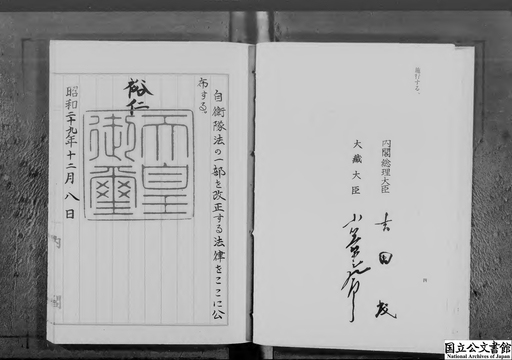 施行する。
内閣総理大臣 吉田茂
大蔵大臣
四
自衛隊法の一部を改正する法律をここに公
布する。
裕仁
天皇
御璽
昭和二十九年十二月八日
国立公文書館
National Archives of Japan